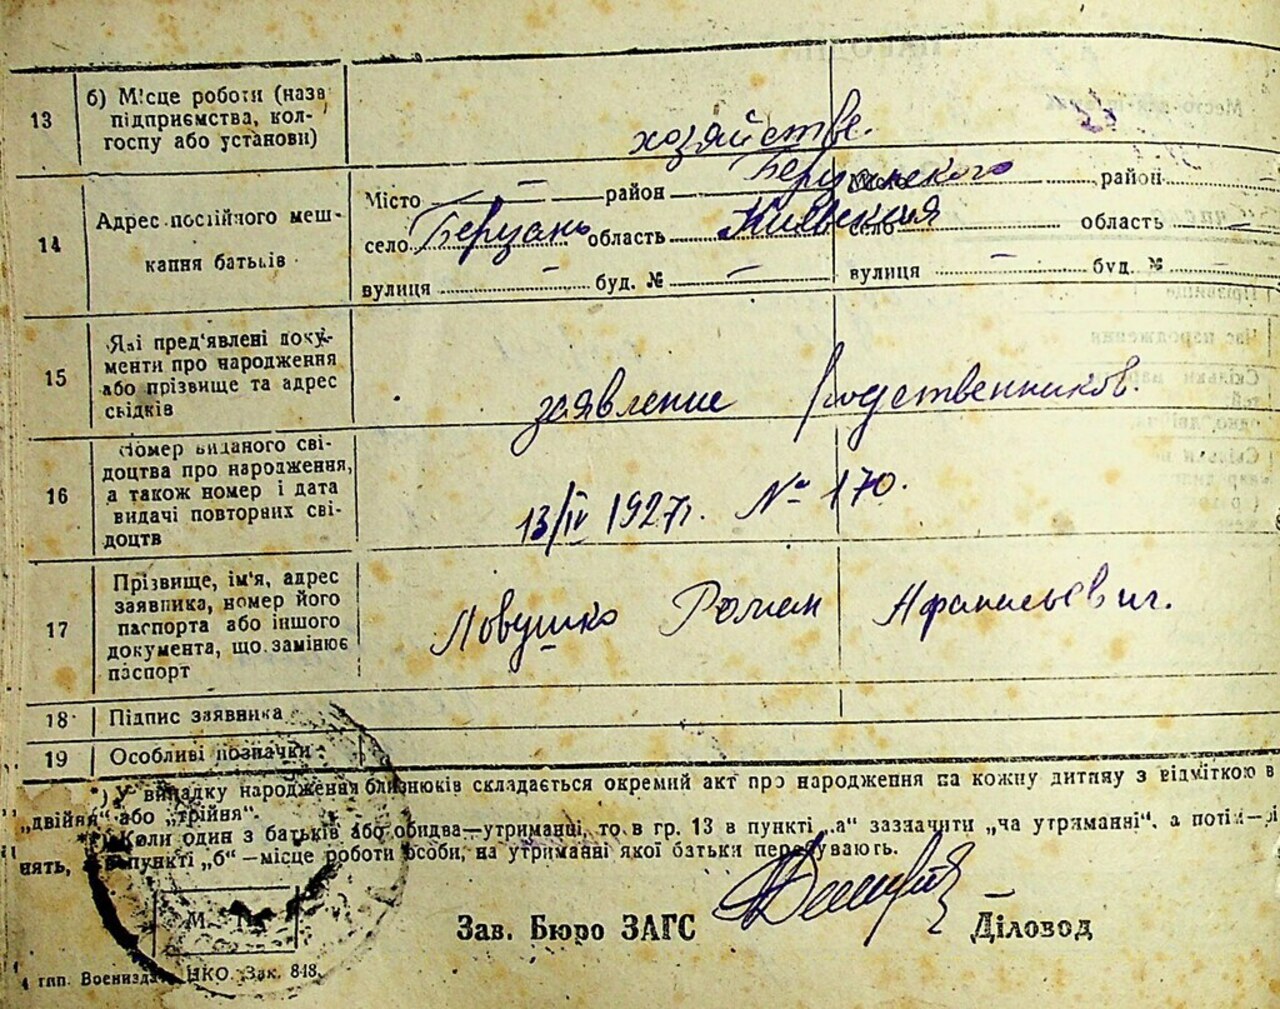 13 б) Місце роботи (назва
підприємства, кол-
госпу або установи)
хозяйстве.
14 Адрес постійного меш-
кання батьків
Місто — район район
село Березань область Киевская область
вулиця — буд. № — вулиця — буд. № —
15 Які пред'явлені доку-
менти про народження
або прізвище та адрес
свідків
заявление родственников.
16 Номер виданого сві-
доцтва про народження,
а також номер і дата
видачі повторних сві-
доцтв
13/IV 1927г. № 170.
17 Прізвище, ім'я, адрес
заявника, номер його
паспорта або іншого
документа, що замінює
паспорт
Ловушко Роман Афанасьевич.
18 Підпис заявника
19 Особливі позначки
*) У випадку народження близнюків складається окремий акт про народження на кожну дитину з відміткою
„двійня“ або „трійня“.
**) Коли один з батьків або обидва—утриманці, то в гр. 13 в пункті „а“ зазначити „на утриманні“, а
в пункті „б“ —місце роботи особи, на утриманні якої батьки перебувають.
М.
Зав. Бюро ЗАГС Діловод
1 тип. Воениздата НКО. Зак. 848.